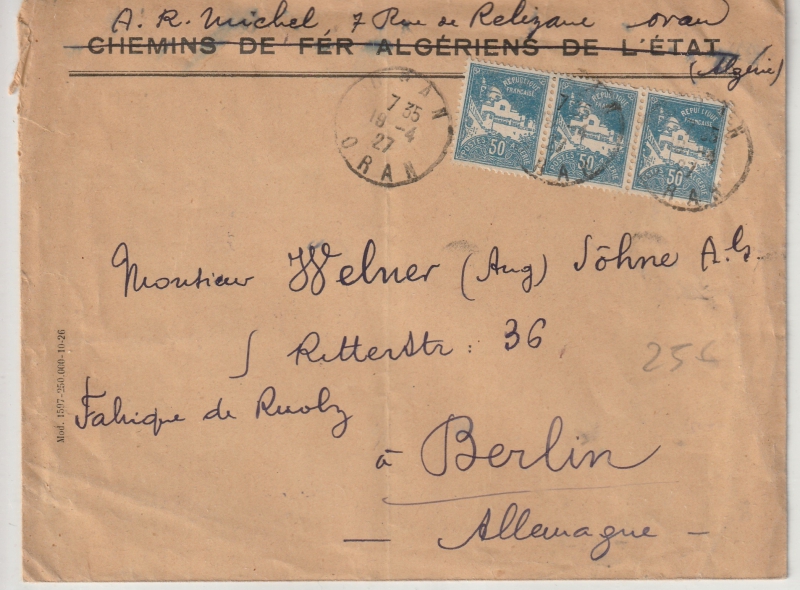 A. R. Michel, 7 Rue de Relizane Oran
(Algérie)
CHEMINS DE FER ALGÉRIENS DE L'ÉTAT
ORAN
7 35
18-4
27
ORAN
RÉPUBLIQUE FRANÇAISE
50
POSTES ALGÉRIE
RÉPUBLIQUE FRANÇAISE
50
RÉPUBLIQUE FRANÇAISE
50
Monsieur Welner (Aug) Söhne A.G.
Ritterstr: 36
25c
Fabrique de Ruolz
à Berlin
Allemagne
Mod. 1597-250.000-10-26